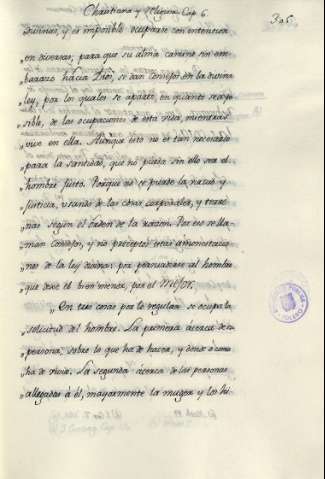 Christiana y Religiosa Cap. 6.
305.
divinas, y es imposible ocuparse con intension
„en diversas; para que su alma camine sin em-
„barazo hacia Dios, se dan consejos en la divina
„ley, por los quales se aparte, en quanto sea po-
„sible, de las ocupaciones de esta vida, mientras
„vive en ella. Aunque esto no es tan necesario
„para la santidad, que no pueda sin ello ser el
„hombre justo. Porque no se pierde la virtud y
„justicia, usando de las cosas corporales, y terre-
„nas segun el orden de la razon. Por eso se lla-
„man consejos, y no preceptos estas amonestacio-
„nes de la ley divina: por persuadirse al hombre
„que deve el bien menor, por el mejor.
„En tres cosas por lo regular se ocupa la
„solicitud del hombre. La primera acerca de su
„persona, sobre lo que ha de hacer, y donde ó como
„ha de vivir. La segunda acerca de las personas
„allegadas á él, mayormente la muger y los hi-